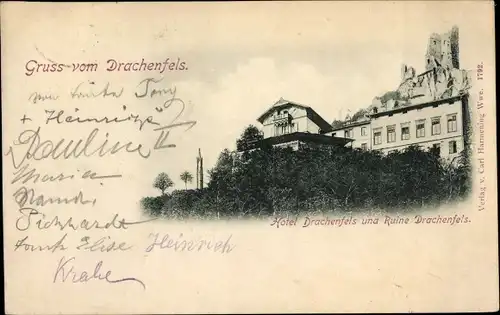 Gruss vom Drachenfels.
von Tante Tony
+ Heinrich
Pauline
Maria
Tante Elise Heinrich
Krahe
Hotel Drachenfels und Ruine Drachenfels.
Verlag v. Carl Harmening Wwe. 1792.